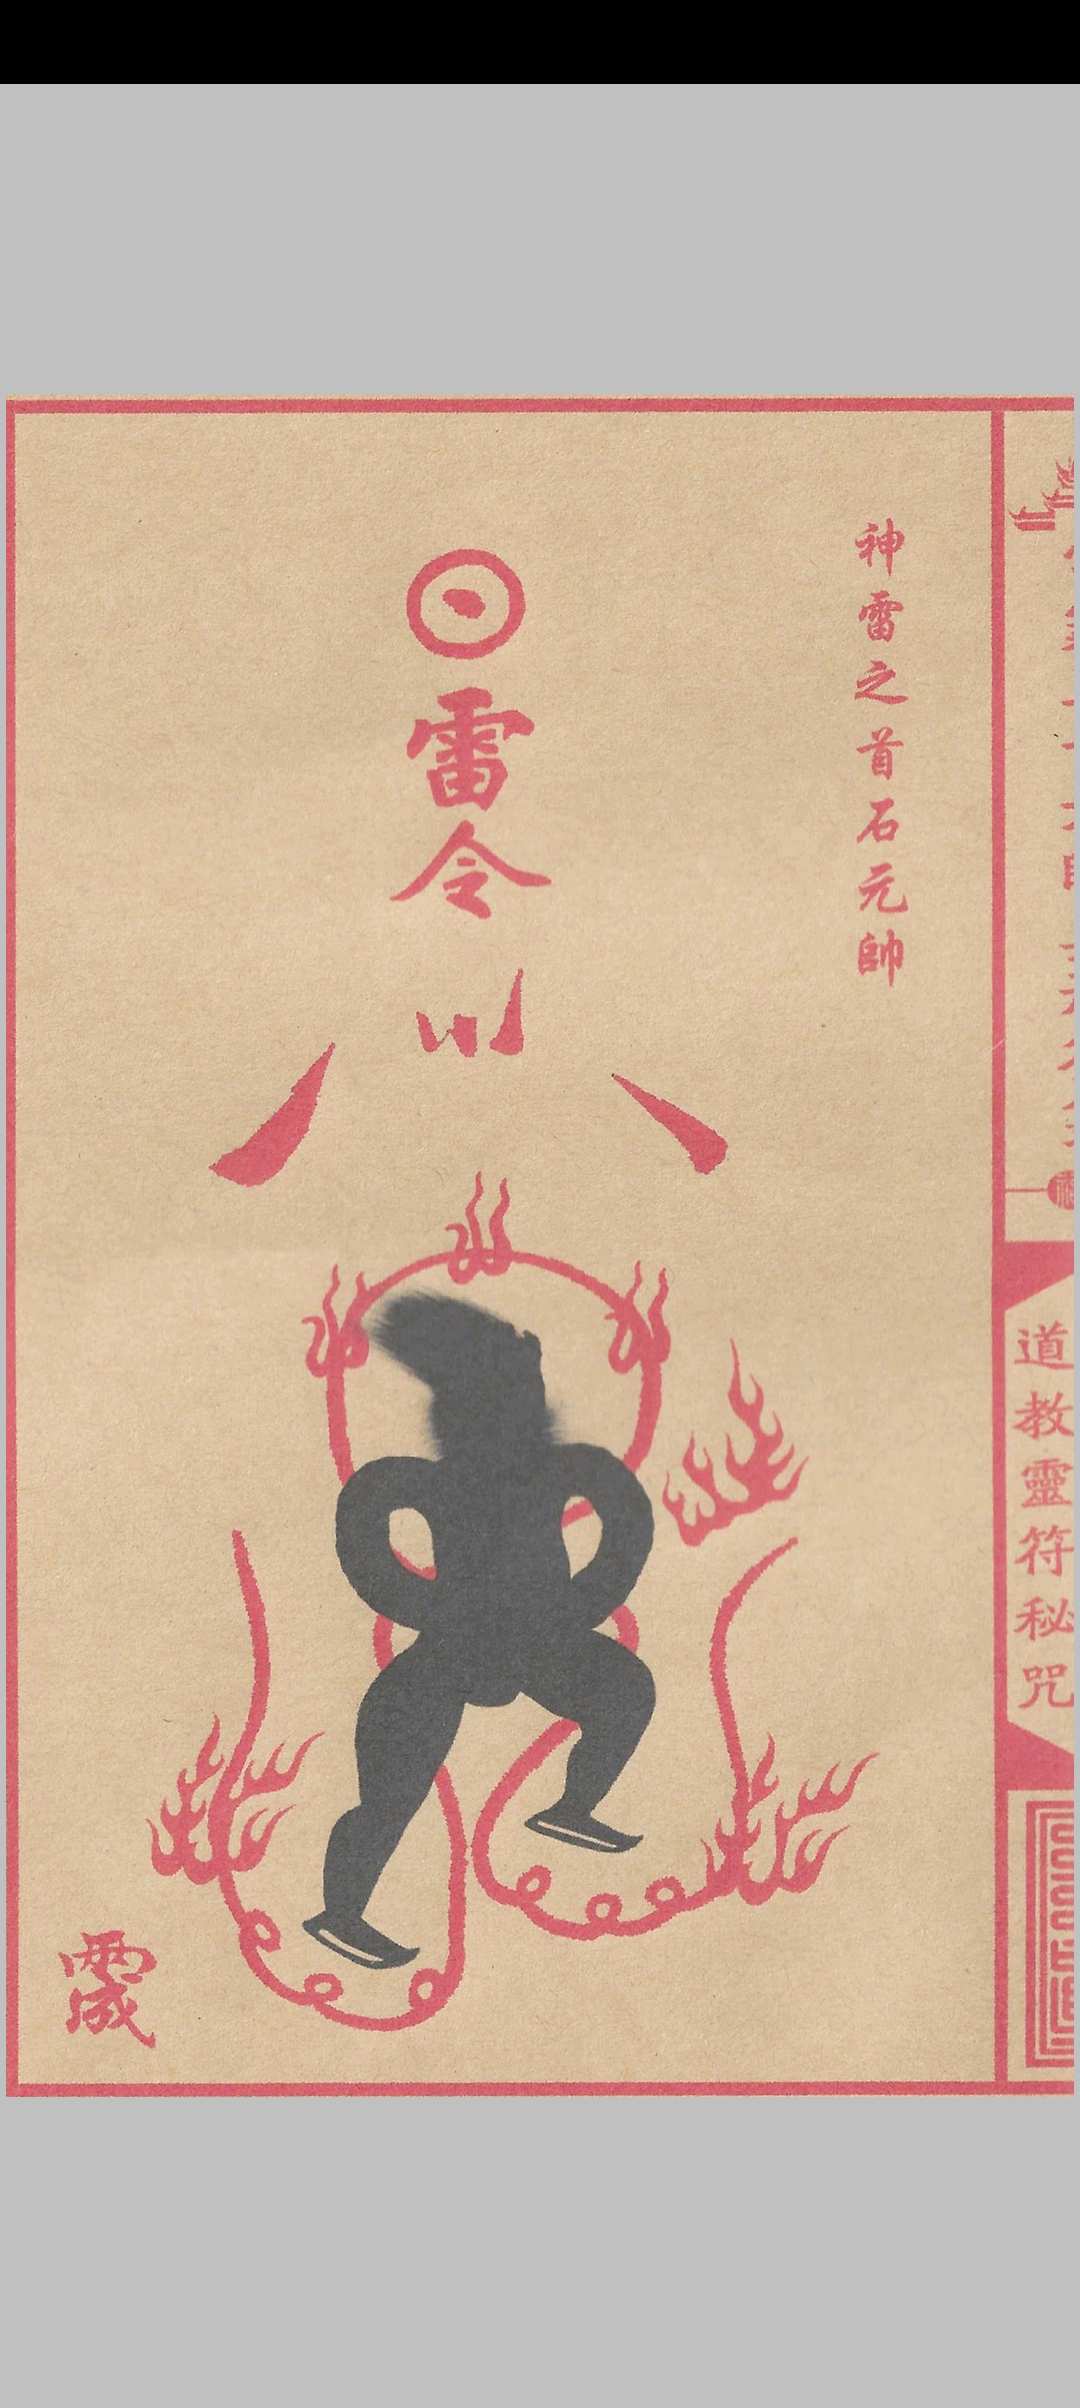 道教靈符秘咒
神雷之首石元帥
雷令